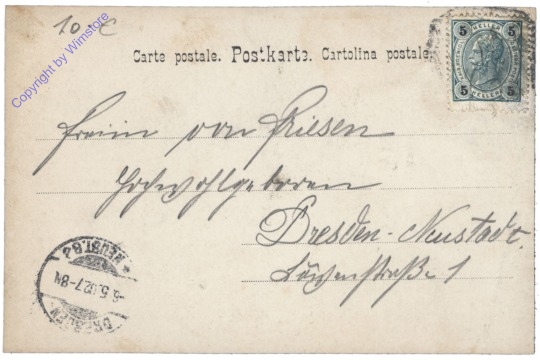 10.-€
Copyright by Wimstore
Carte postale. Postkarte. Cartolina postale.
5 5
HELLER
5 5
HELLER
Freiin von Friesen
Hochwohlgeboren
Dresden-Neustadt.
Löwenstraße 1
NEUST. 8
5. 02. 7-8
DRESDEN-